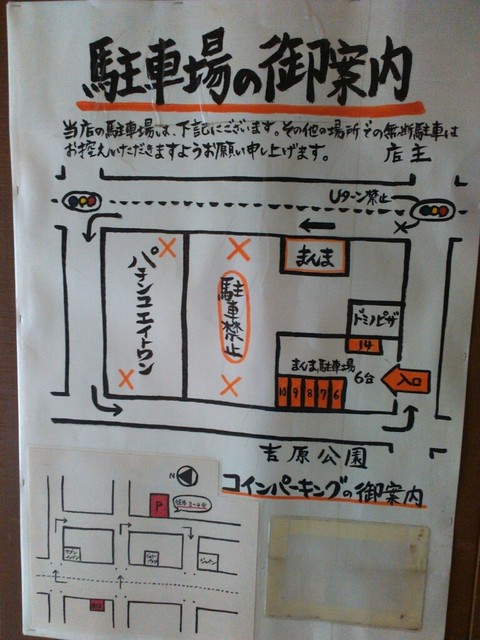 駐車場の御案内
当店の駐車場は、下記にございます。その他の場所での無断駐車は
お控えいただきますようお願い申し上げます。 店主
Uターン禁止
まんま
パチンコエイトワン
駐車禁止
ドミノピザ
14
まんま駐車場
6台
入口
10 9 8 7 6
吉原公園
コインパーキングの御案内
N
P